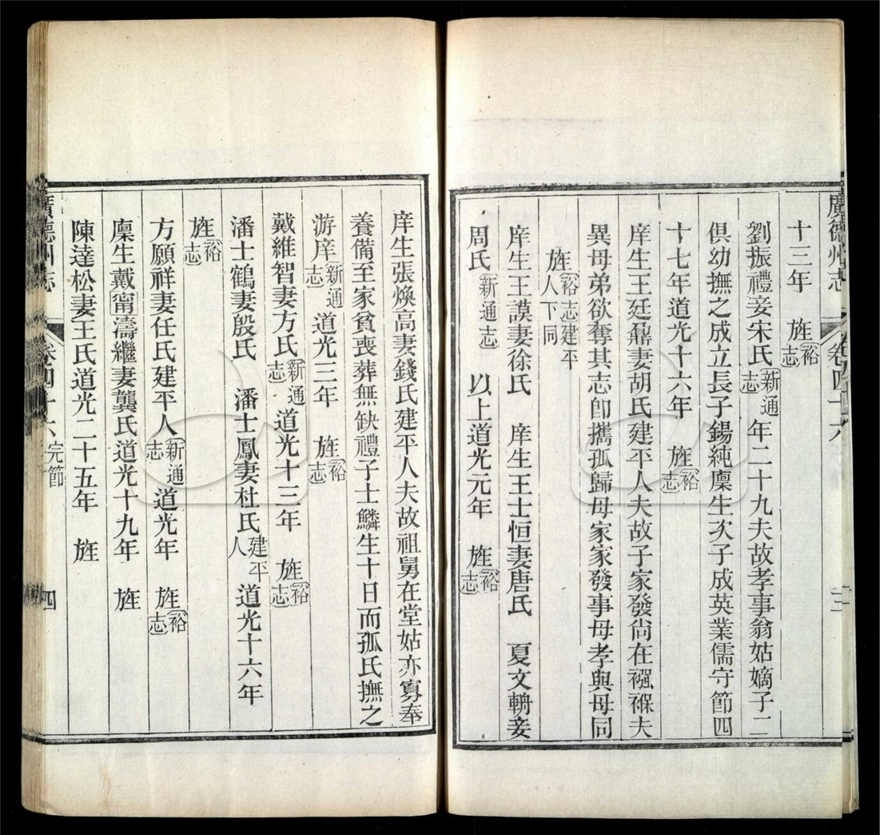 廣德州志 卷四十六 三
十三年 旌裕志
劉振禮妾宋氏新通志年二十九夫故孝事翁姑嫡子二
俱幼撫之成立長子錫純廩生次子成英業儒守節四
十七年道光十六年 旌裕志
庠生王廷鼐妻胡氏建平人夫故子家發尙在襁褓夫
異母弟欲奪其志卽攜孤歸母家家發事母孝與母同
旌裕志建平人下同
庠生王謨妻徐氏 庠生王士恒妻唐氏 夏文輈妾
周氏新通志 以上道光元年 旌裕志
庠生張煥高妻錢氏建平人夫故祖舅在堂姑亦寡奉
養備至家貧喪葬無缺禮子士鱗生十日而孤氏撫之
游庠新通志道光三年 旌裕志
戴維智妻方氏新通志道光十三年 旌裕志
潘士鶴妻殷氏 潘士鳳妻杜氏建平人道光十六年
旌裕志
方願祥妻任氏建平人新通志道光年 旌裕志
廩生戴甯濤繼妻龔氏道光十九年 旌
陳達松妻王氏道光二十五年 旌
廣德州志 卷四十六 完節 四